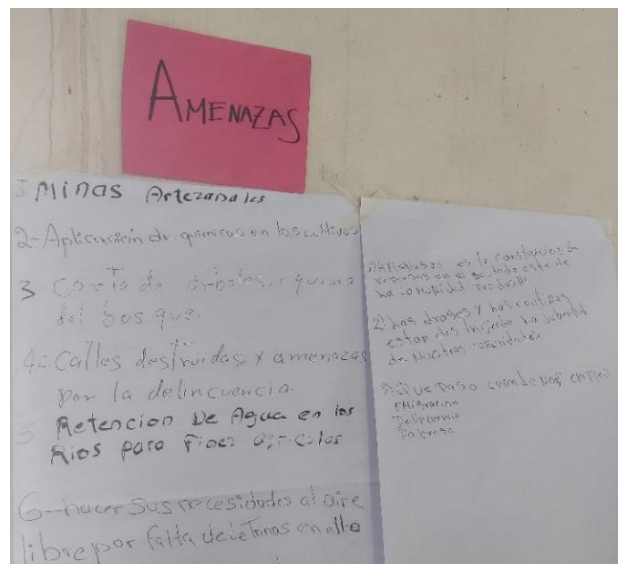 AMENAZAS
I Minas Artezanales
2- Aplicación de químicos en los cultivos
3 Corta de árboles, quema
del bosque.
4- Calles destruidas y amenazas
por la delincuencia.
5 Retencion De Agua en los
Rios para Fines agricolas
6- hacer sus necesidades al aire
libre por falta de letrinas en
es la
de
2) Las drogas y las cantinas
estan destruyendo la juventud
de Nuestras comunidades
3) Que pasa cuando No hay empleo
EMigracion
Delincuencia
Pobreza